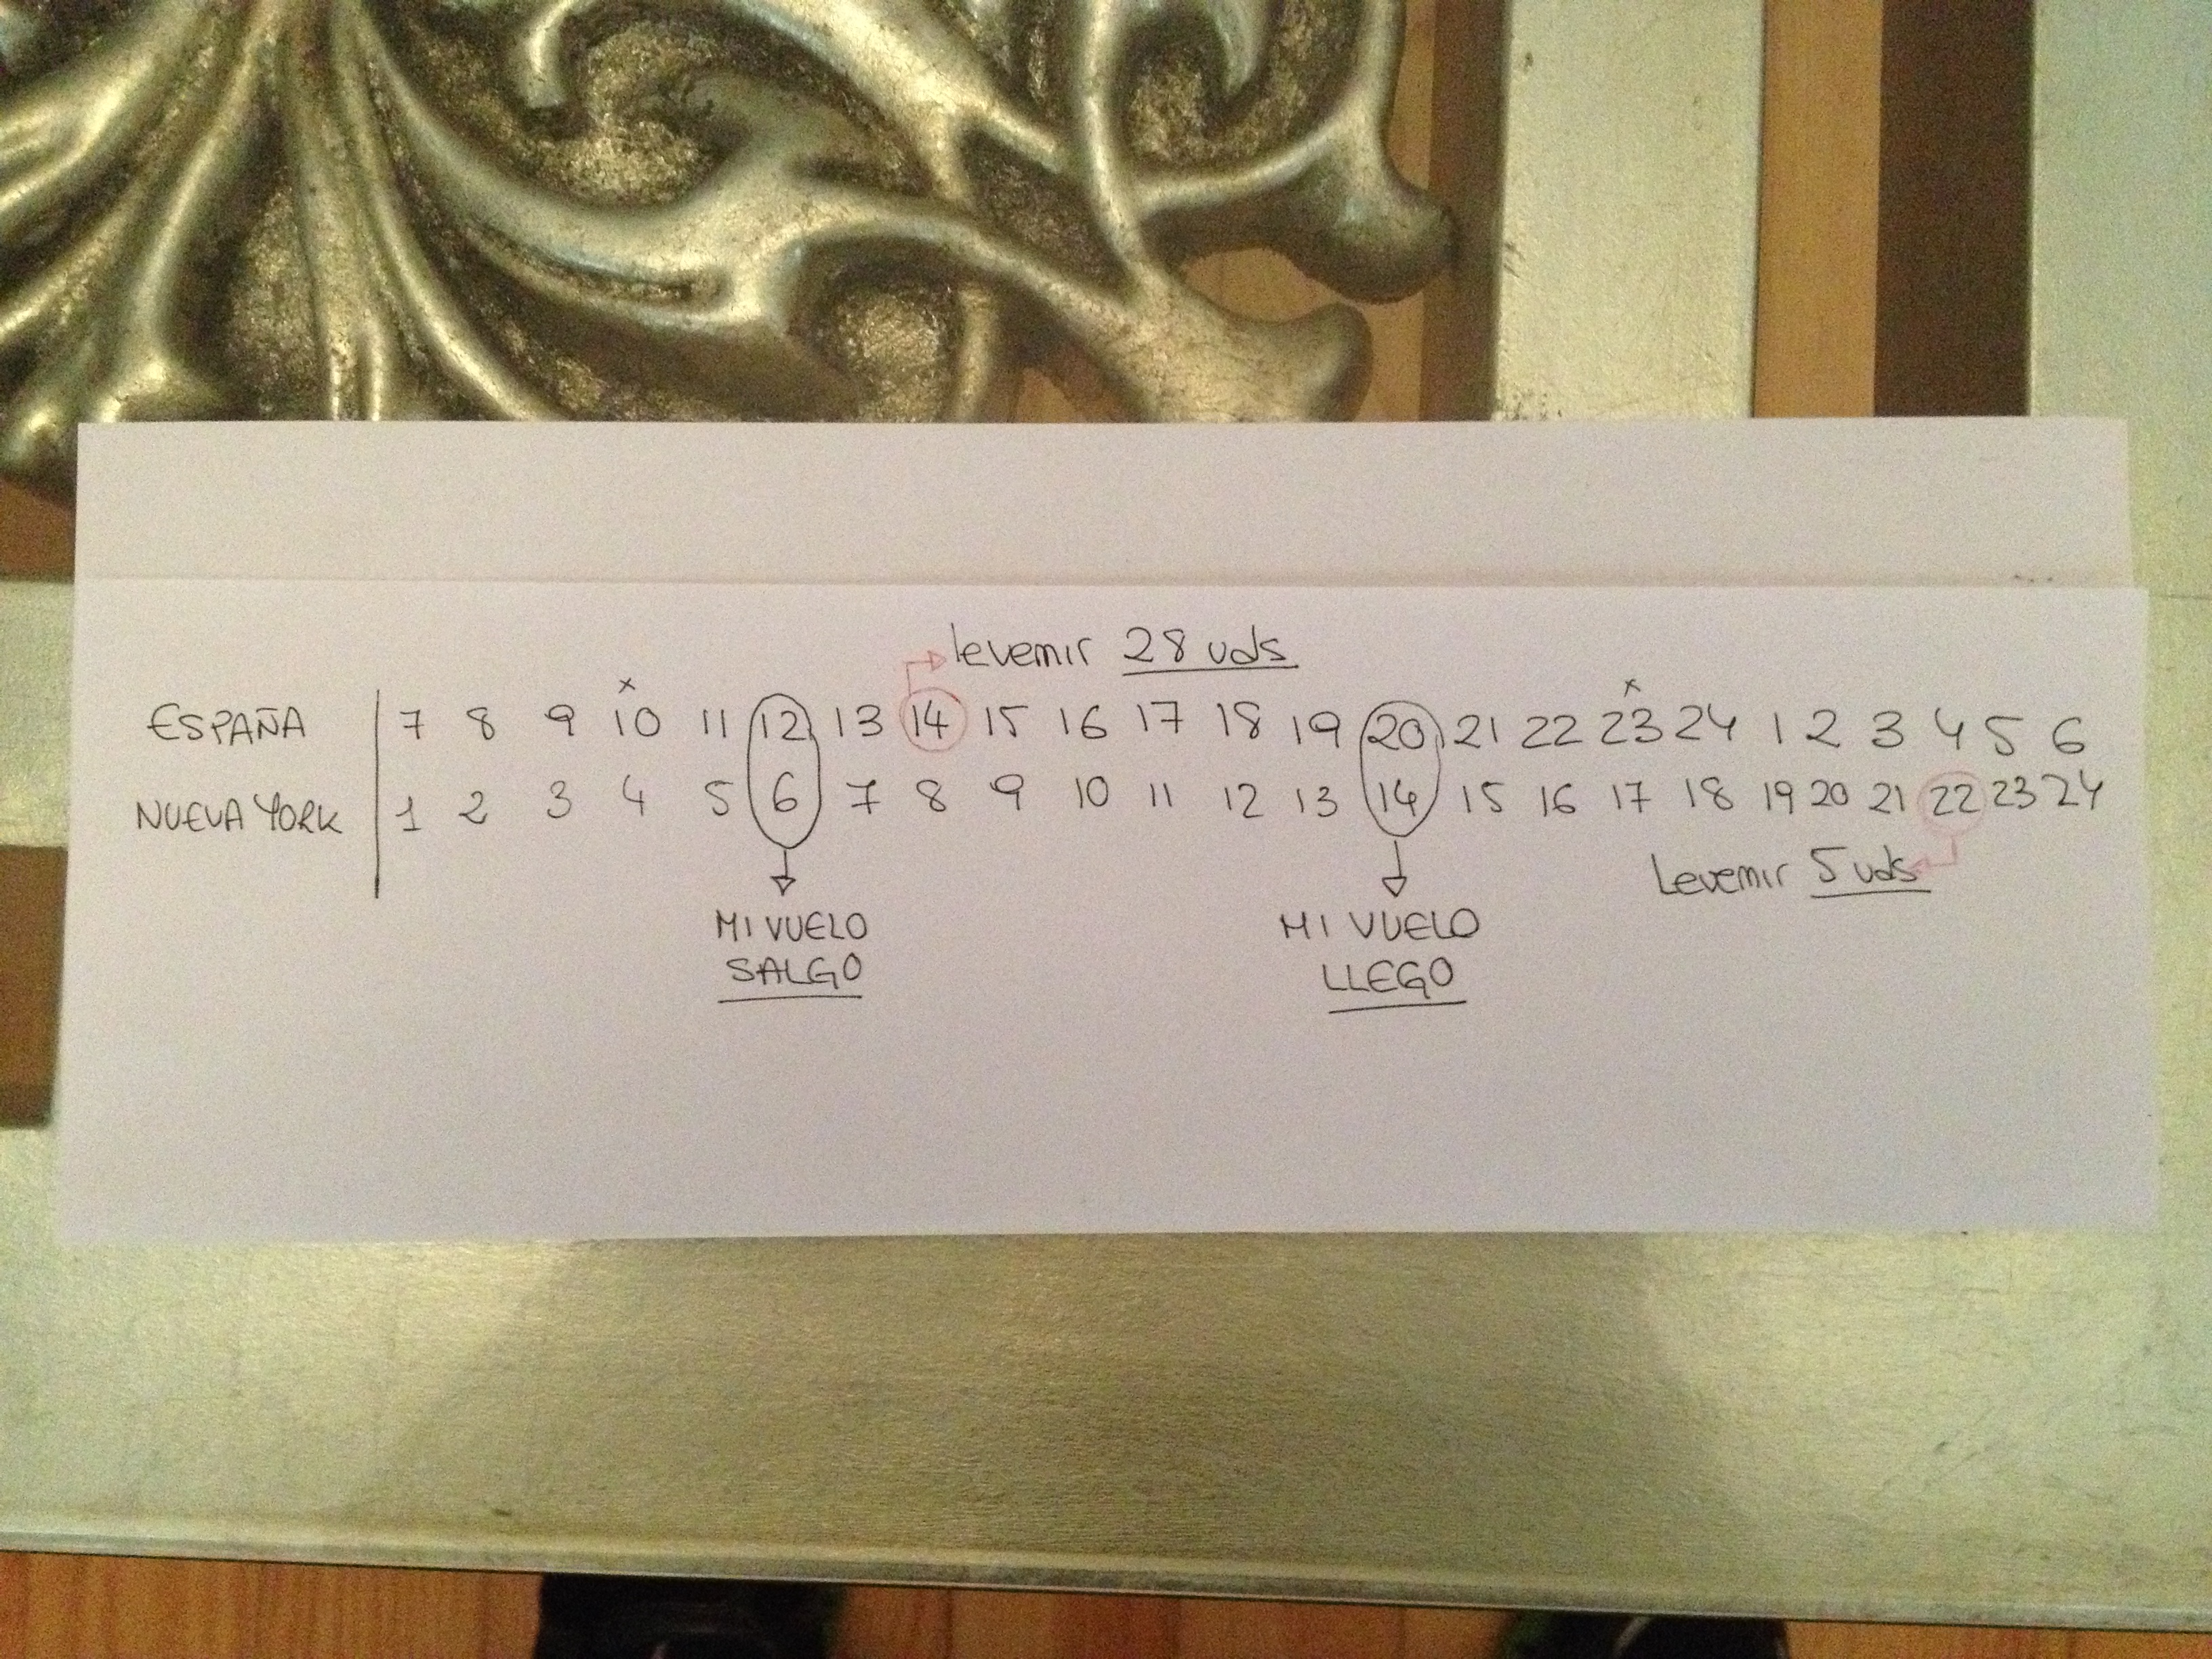 levemir 28 uds
x x
ESPAÑA 7 8 9 10 11 12 13 14 15 16 17 18 19 20 21 22 23 24 1 2 3 4 5 6
NUEVA YORK 1 2 3 4 5 6 7 8 9 10 11 12 13 14 15 16 17 18 19 20 21 22 23 24
Levemir 5 uds
MI VUELO
SALGO
MI VUELO
LLEGO